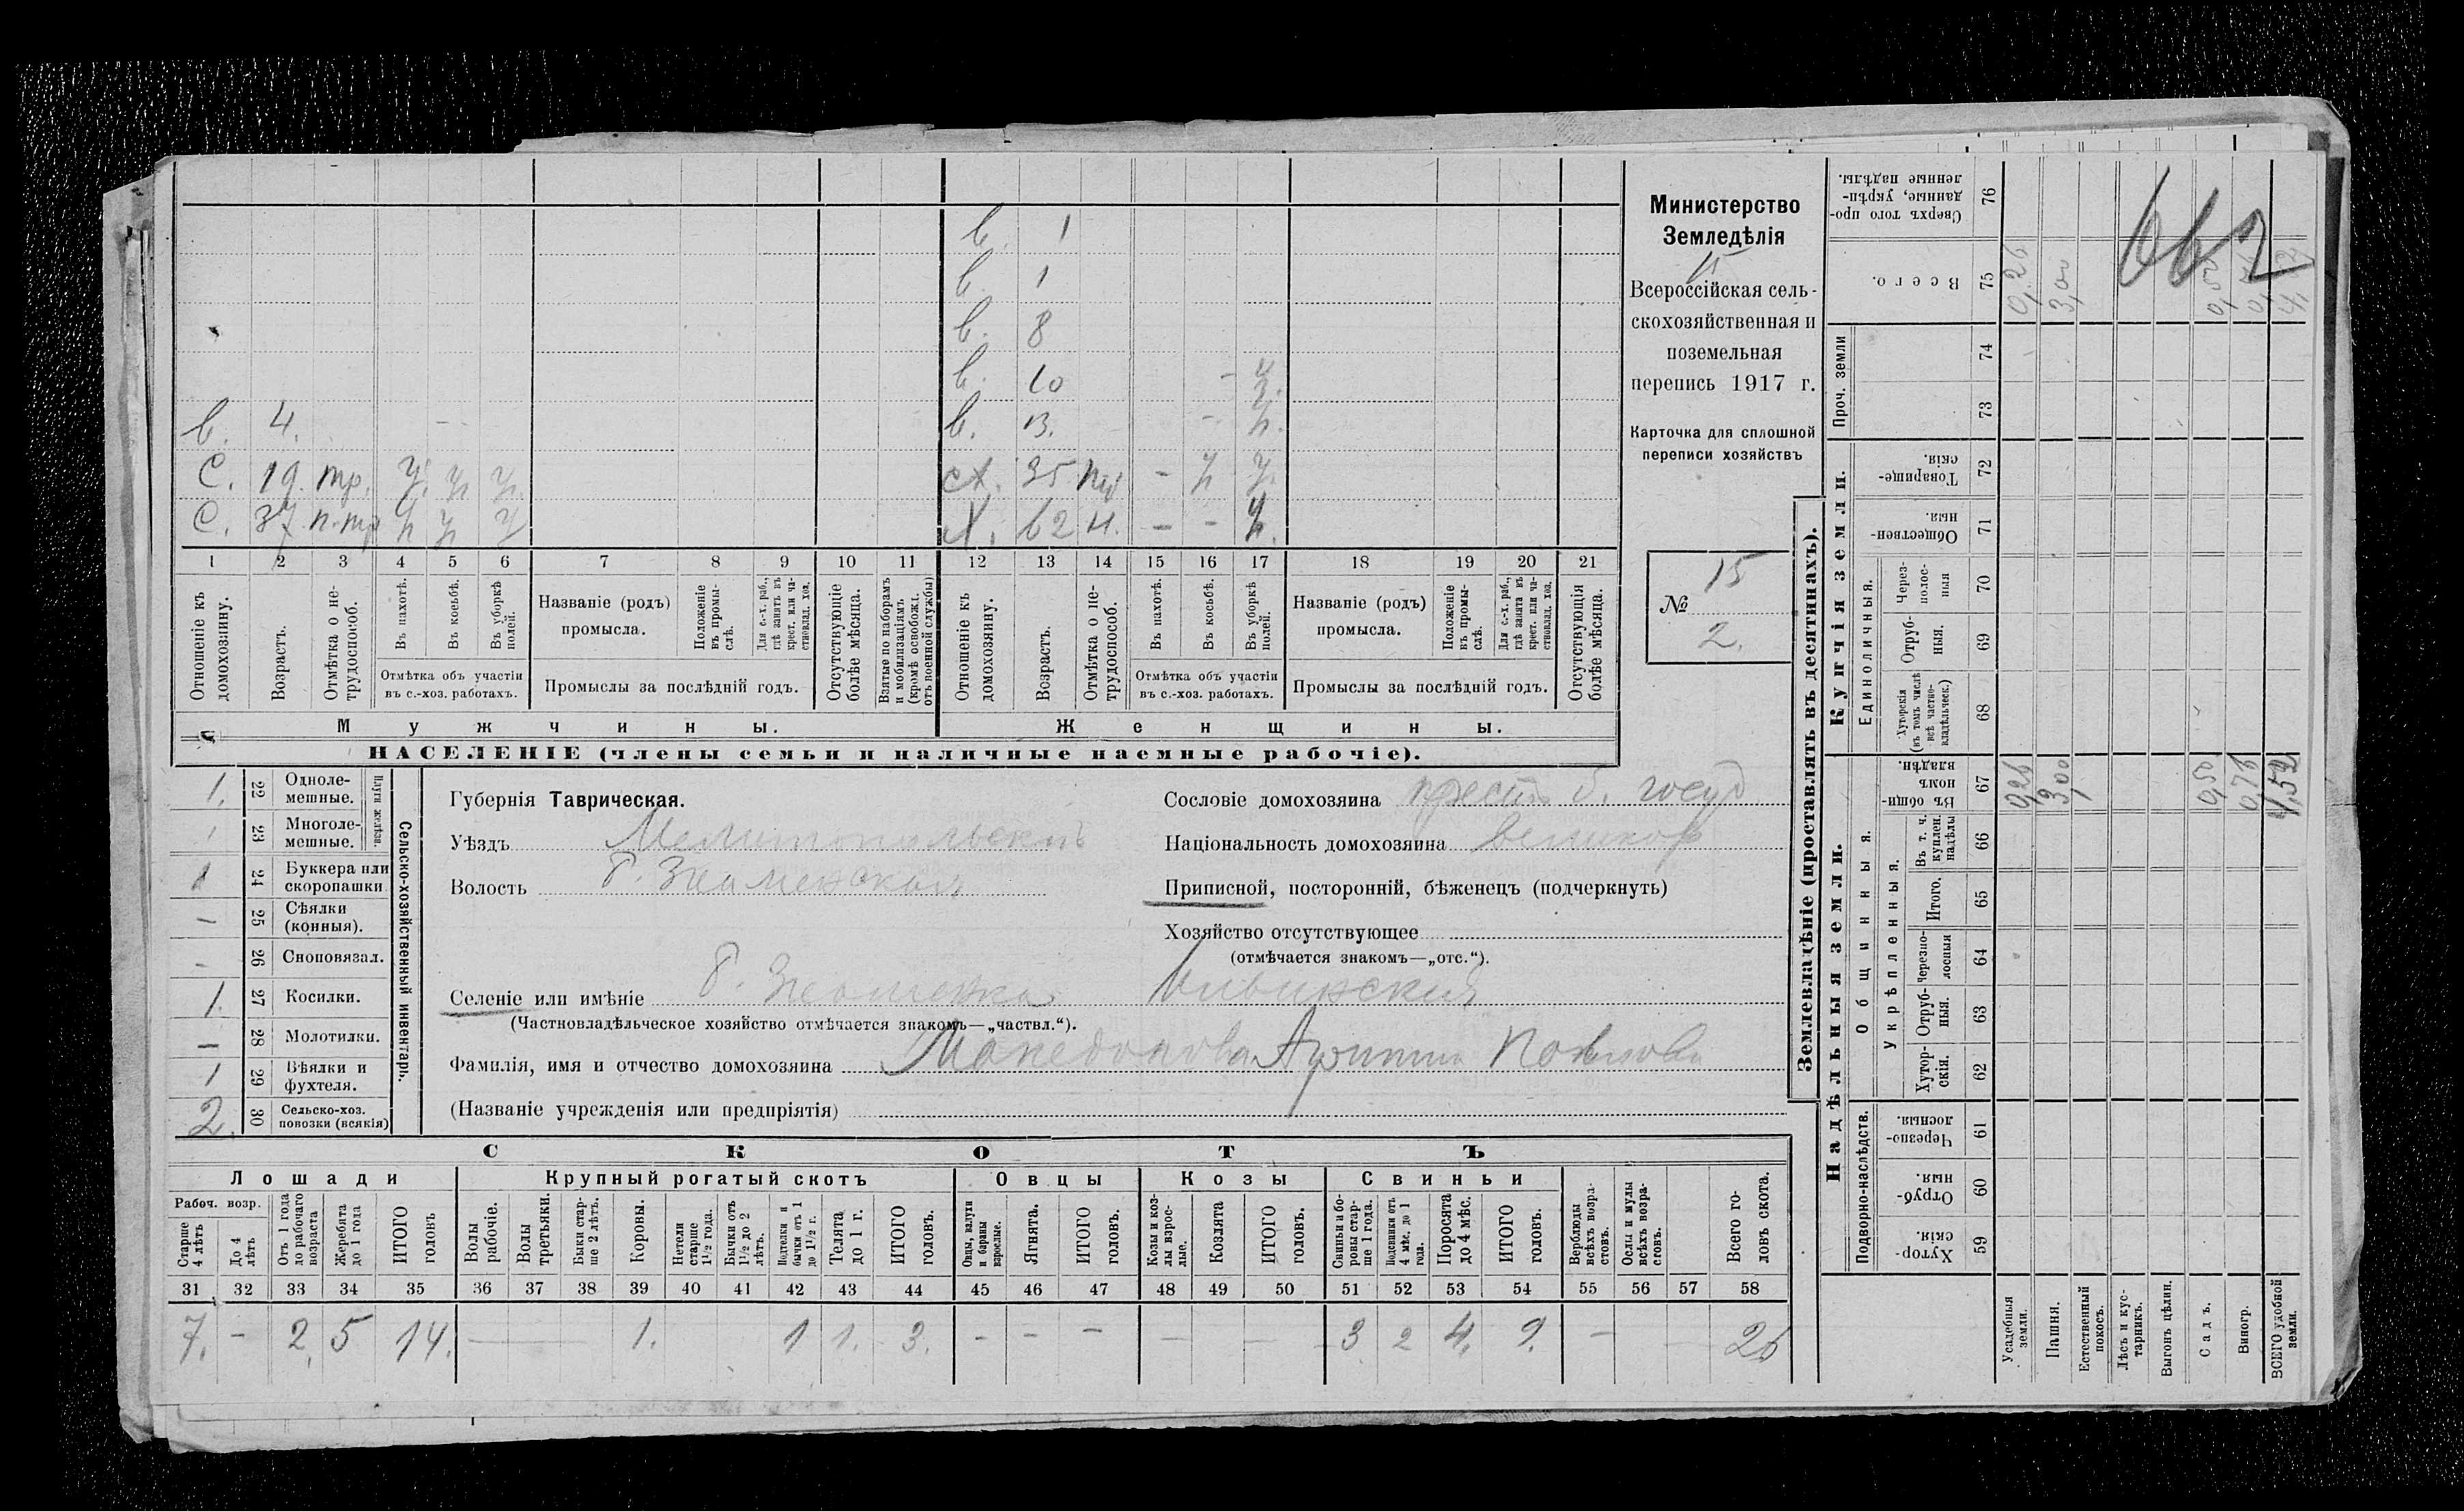 в. 1
в. 1
в. 8
в. 10 - у.
в. 4. - в. 13. - у.
С. 19. тр. у. у. у. сх. 35 - у у.
С. 37 п.тр у у у Х. 62 н. - - у.
1 2 3 4 5 6 7 8 9 10 11 12 13 14 15 16 17 18 19 20 21
Отношеніе къ домохозяину.
Возрастъ.
Отмѣтка о не-трудоспособ.
Въ пахотѣ.
Въ косьбѣ.
Въ уборкѣ полей.
Отмѣтка объ участіи
въ с.-хоз. работахъ.
Названіе (родъ)
промысла.
Положеніе въ промы-слѣ.
Для с.-х. раб., гдѣ занятъ въ крест. или ча-стновлад. хоз.
Промыслы за послѣдній годъ.
Отсутствующіе болѣе мѣсяца.
Взятые по наборамъ и мобилизаціямъ (кромѣ освобожд. отъ военной службы)
Отношеніе къ домохозяину.
Возрастъ.
Отмѣтка о не-трудоспособ.
Въ пахотѣ.
Въ косьбѣ.
Въ уборкѣ полей.
Отмѣтка объ участіи
въ с.-хоз. работахъ.
Названіе (родъ)
промысла.
Положеніе въ промы-слѣ.
Для с.-х. раб., гдѣ занята въ крест. или ча-стновлад. хоз.
Промыслы за послѣдній годъ.
Отсутствующія болѣе мѣсяца.
Мужчины. Женщины.
НАСЕЛЕНІЕ (члены семьи и наличные наемные рабочіе).
Министерство
Земледѣлія
Всероссійская сель-
скохозяйственная и
поземельная
перепись 1917 г.
Карточка для сплошной
переписи хозяйствъ
15
№
2.
Сельско-хозяйственный инвентарь.
Плуги желѣзн.
1. 22 Одноле-мешные.
23 Многоле-мешные.
1 24 Буккера или скоропашки
— 25 Сѣялки (конныя).
- 26 Сноповязал.
1. 27 Косилки.
— 28 Молотилки.
1 29 Вѣялки и фухтеля.
2. 30 Сельско-хоз. повозки (всякія)
Губернія Таврическая.
Уѣздъ Мелитопольскій
Волость Б. Знаменская
Селеніе или имѣніе Б. Знаменка
(Частновладѣльческое хозяйство отмѣчается знакомъ—„частвл.“).
Фамилія, имя и отчество домохозяина Македонова
(Названіе учрежденія или предпріятія)
Сословіе домохозяина крест. б. госуд
Національность домохозяина великор
Приписной, посторонній, бѣженецъ (подчеркнуть)
Хозяйство отсутствующее
(отмѣчается знакомъ—„отс.“).
СКОТЪ
Лошади Крупный рогатый скотъ Овцы Козы Свиньи
Рабоч. возр.
Старше 4 лѣтъ
До 4 лѣтъ
Отъ 1 года до рабочаго возраста
Жеребята до 1 года
ИТОГО головъ
Волы рабочіе.
Волы третьяки.
Быки стар-ше 2 лѣтъ.
Коровы.
Нетели старше 1½ года.
Бычки отъ 1½ до 2 лѣтъ.
Подтелки и бычки отъ 1 до 1½ г.
Телята до 1 г.
ИТОГО головъ.
Овцы, валухи и бараны взрослые.
Ягнята.
ИТОГО головъ.
Козы и коз-лы взрос-лые.
Козлята
ИТОГО головъ.
Свиньи и бо-ровы стар-ше 1 года.
Подсвинки отъ 4 мѣс. до 1 года.
Поросята до 4 мѣс.
ИТОГО головъ.
Верблюды всѣхъ возра-стовъ.
Ослы и мулы всѣхъ возра-стовъ.
Всего го-ловъ скота.
31 32 33 34 35 36 37 38 39 40 41 42 43 44 45 46 47 48 49 50 51 52 53 54 55 56 57 58
7. - 2 5 14. — — 1. 1 1. 3. - - - — — 3 2 4. 9. — 26
Землевладѣніе (проставлять въ десятинахъ).
Надѣльныя земли. Купчія земли. Проч. земли
Подворно-наслѣдств.
Общинныя.
Укрѣпленныя.
Единоличныя.
59 Хутор-скія.
60 Отруб-ныя.
61 Черезпо-лосныя.
62 Хутор-скія.
63 Отруб-ныя.
64 Черезпо-лосныя
65 Итого.
66 Въ т. ч. куплен. надѣлы
67 Въ общи-номъ владѣн.
68 Хуторскія (въ томъ числѣ всѣ частно-владѣльческ.)
69 Отруб-ныя.
70 Через-полос-ныя
71 Обществен-ныя.
72 Товарище-скія.
73
74
75 Всего.
76 Сверхъ того про-данные, укрѣп-ленные надѣлы.
Усадебныя земли.
Пашня.
Естественный покосъ.
Лѣсъ и кус-тарникъ.
Выгонъ цѣлин.
Садъ.
Виногр.
ВСЕГО удобной земли.
0,26 3,00 0,50 0,76 4,52
0,26 3,00 0,50 0,76 4,52
662